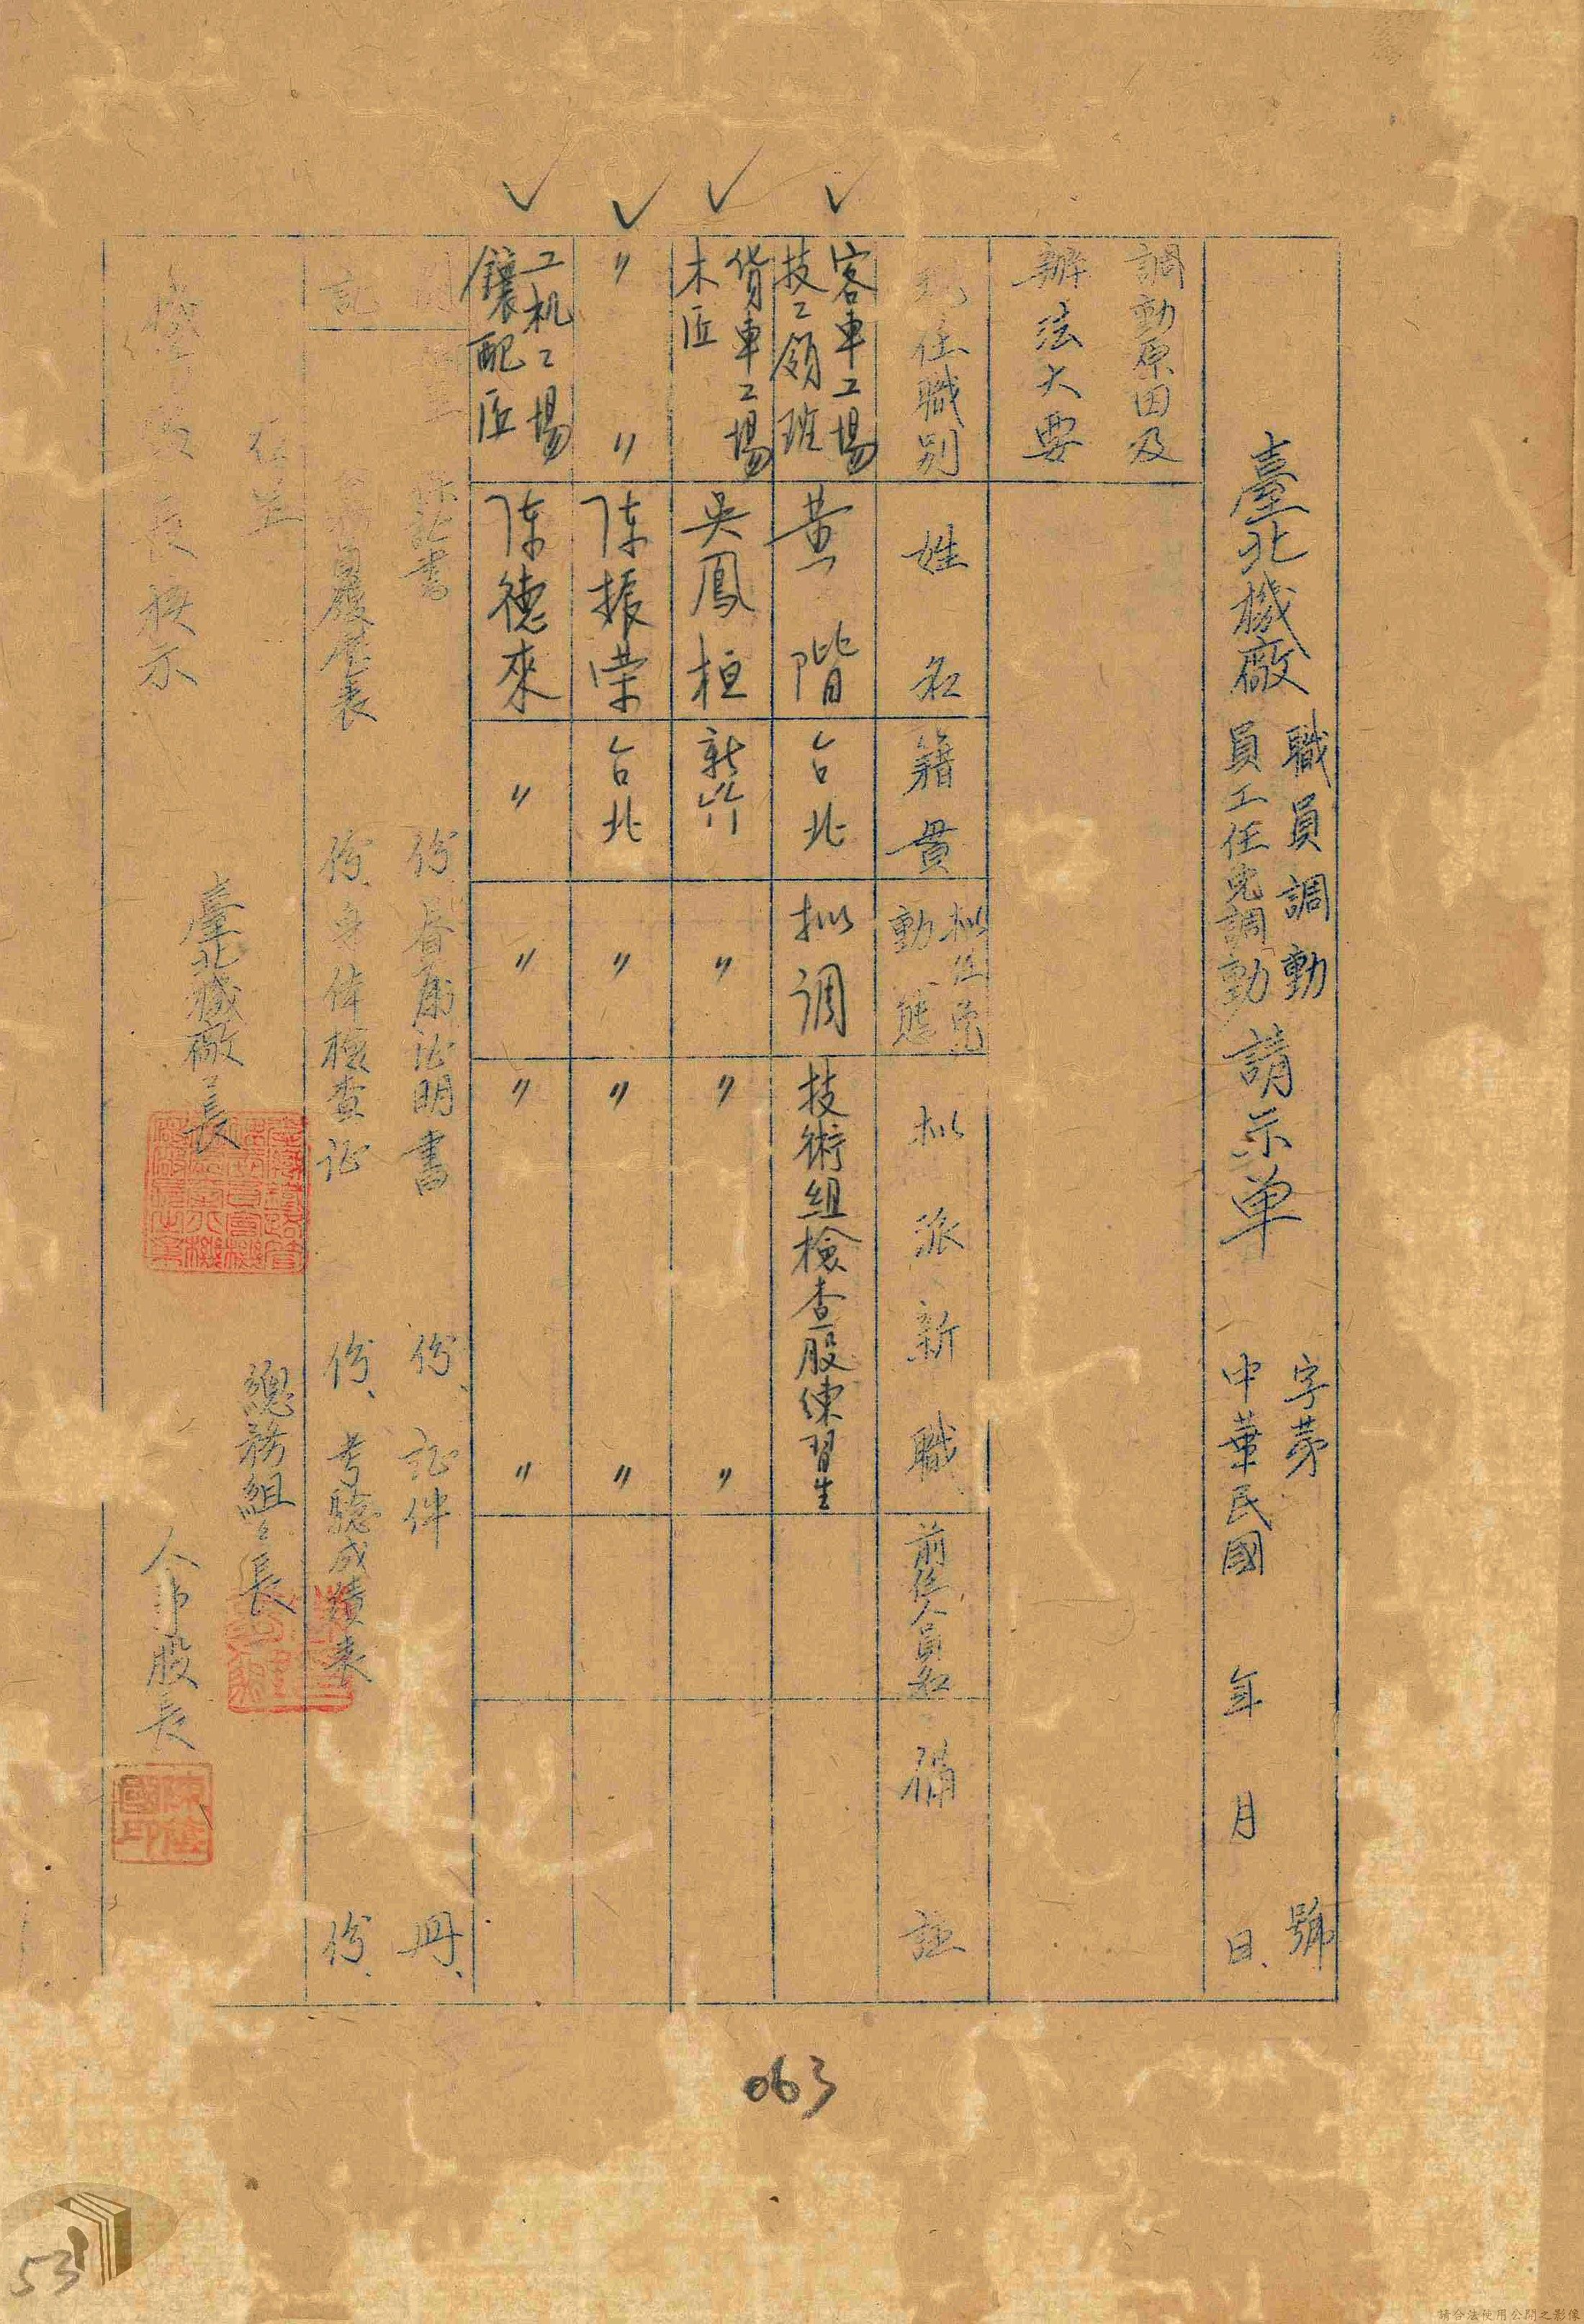 臺北機廠
職員調動
員工任免調動
請示單
字第 號
中華民國 年 月 日、
調動原因及
辦法大要
現任職別 姓名 籍貫 拟任免動態 拟派新職 前任人員名 備註
客車工場
技工領班 黃階 台北 拟调 技術組檢查股練習生
貨車工場
木匠 吳鳳桓 新竹 〃 〃 〃
〃 〃 陈振荣 台北 〃 〃 〃
工机工場
鑲配匠 陈德來 〃 〃 〃 〃
保証書 份、 証明書 份、証件 冊、
記 履歷表 份、身体檢查证 份、考驗成績表 份、
總務組組長
臺北機廠廠長
長核示
人事股長
063
53
請合法使用公開之影像